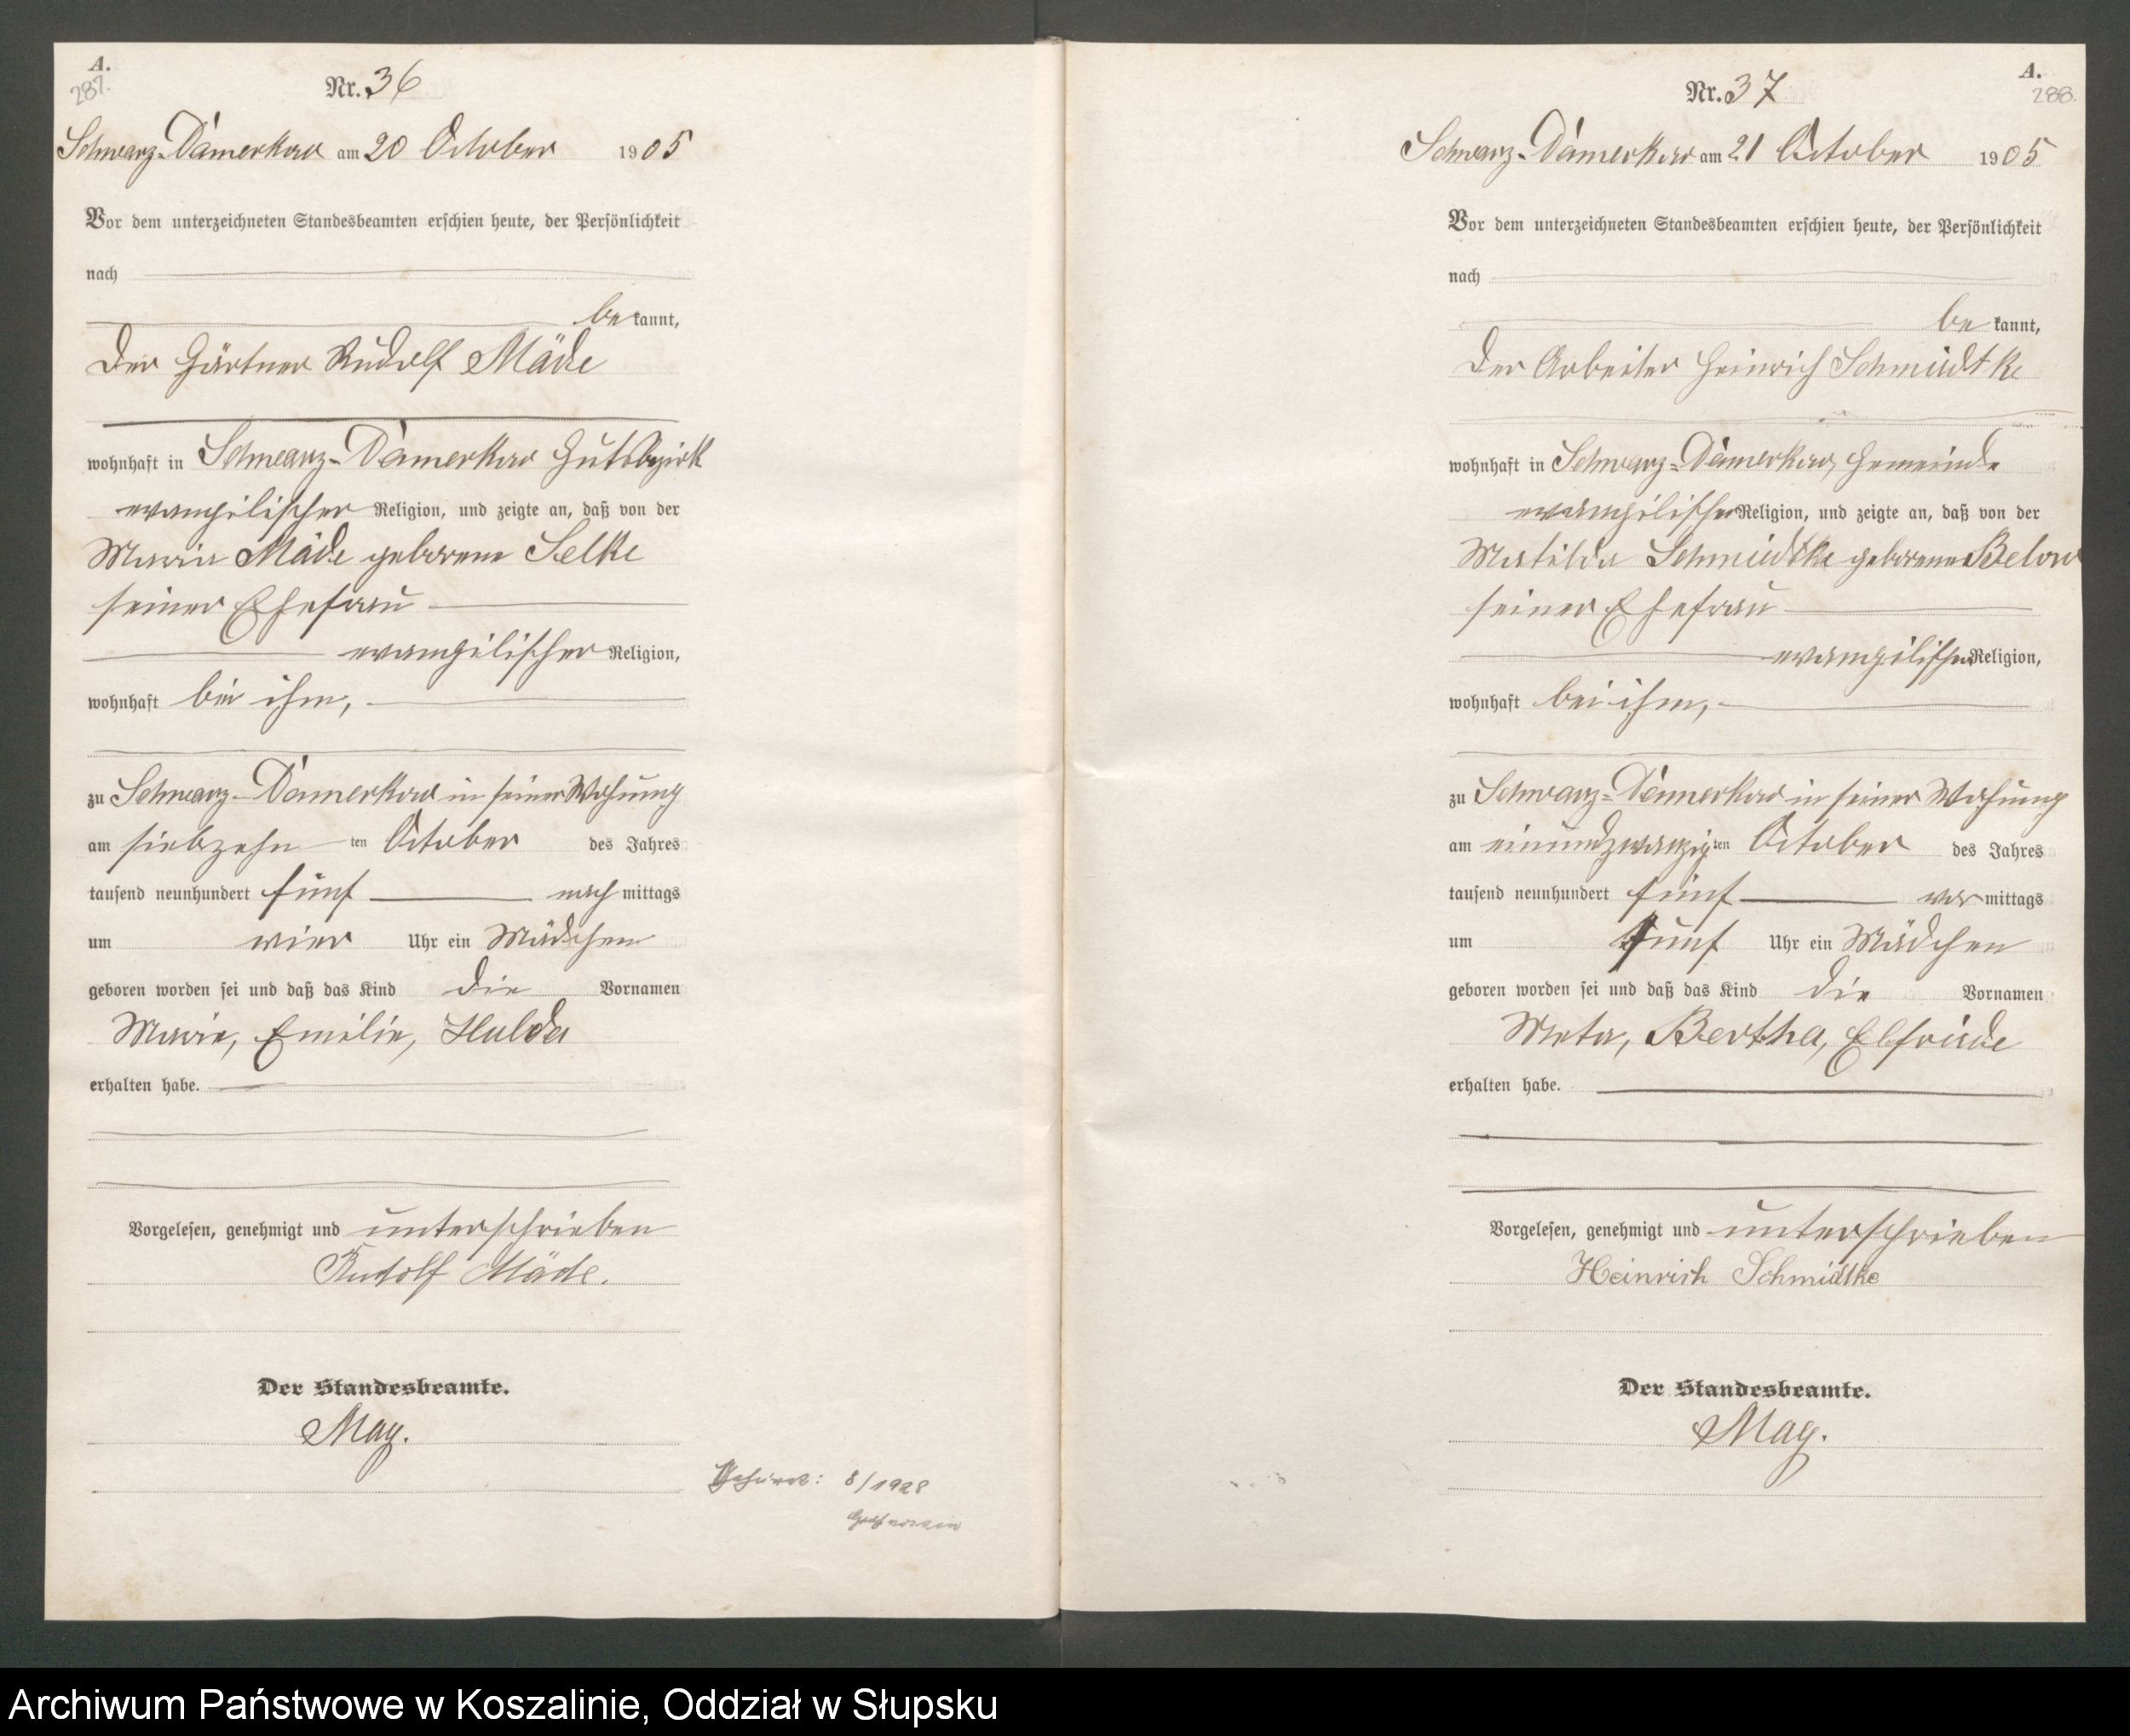 A.
287.
Nr. 36
Schwarz-Damerkow am 20 October 1905
Vor dem unterzeichneten Standesbeamten erschien heute, der Persönlichkeit
nach
bekannt,
der Gärtner Rudolf Mäde
wohnhaft in Schwarz-Damerkow Gutsbezirk
evangelischer Religion, und zeigte an, daß von der
Maria Mäde geborene Selke
seiner Ehefrau
evangelischer Religion,
wohnhaft bei ihm,
zu Schwarz-Damerkow in seiner Wohnung
am siebzehnten October des Jahres
tausend neunhundert fünf nachmittags
um vier Uhr ein Mädchen
geboren worden sei und daß das Kind die Vornamen
Marie, Emilie, Hulda
erhalten habe.
Vorgelesen, genehmigt und unterschrieben
Rudolf Mäde.
Der Standesbeamte.
May.
8/1928
A.
288.
Nr. 37
Schwarz-Damerkow am 21 October 1905
Vor dem unterzeichneten Standesbeamten erschien heute, der Persönlichkeit
nach
bekannt,
der Arbeiter Heinrich Schmidtke
wohnhaft in Schwarz-Damerkow, Gemeinde
evangelischer Religion, und zeigte an, daß von der
Matilda Schmidtke geborene Below
seiner Ehefrau
evangelischer Religion,
wohnhaft bei ihm,
zu Schwarz-Damerkow in seiner Wohnung
am einundzwanzigten October des Jahres
tausend neunhundert fünf vormittags
um fünf Uhr ein Mädchen
geboren worden sei und daß das Kind die Vornamen
Meta, Bertha, Elfriede
erhalten habe.
Vorgelesen, genehmigt und unterschrieben
Heinrich Schmidtke
Der Standesbeamte.
May.
Archiwum Państwowe w Koszalinie, Oddział w Słupsku